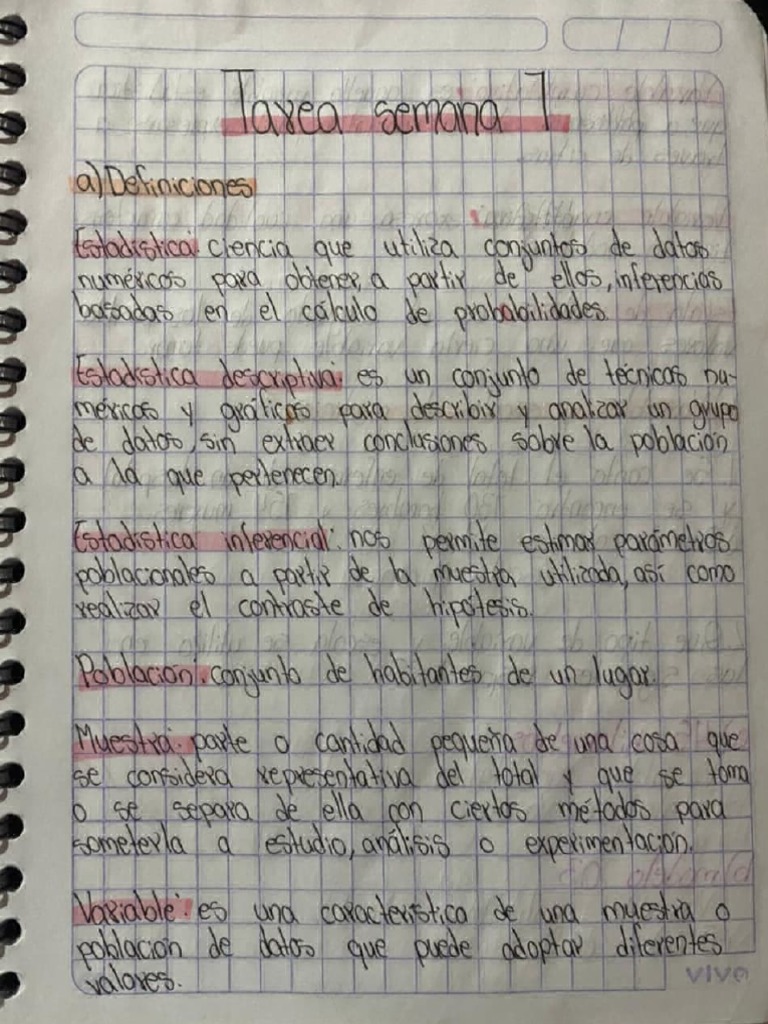 Tarea semana 1
a) Definiciones
Estadística: ciencia que utiliza conjuntos de datos
numéricos para obtener, a partir de ellos, inferencias
basadas en el cálculo de probabilidades.
Estadística descriptiva: es un conjunto de técnicas nu-
méricas y gráficas para describir y analizar un grupo
de datos, sin extraer conclusiones sobre la población
a la que pertenecen.
Estadística inferencial: nos permite estimar parámetros
poblacionales a partir de la muestra utilizada, así como
realizar el contraste de hipótesis.
Población: conjunto de habitantes de un lugar.
Muestra: parte o cantidad pequeña de una cosa que
se considera representativa del total y que se toma
o se separa de ella con ciertos métodos para
someterla a estudio, análisis o experimentación.
Variable: es una característica de una muestra o
población de datos que puede adoptar diferentes
valores.
vive